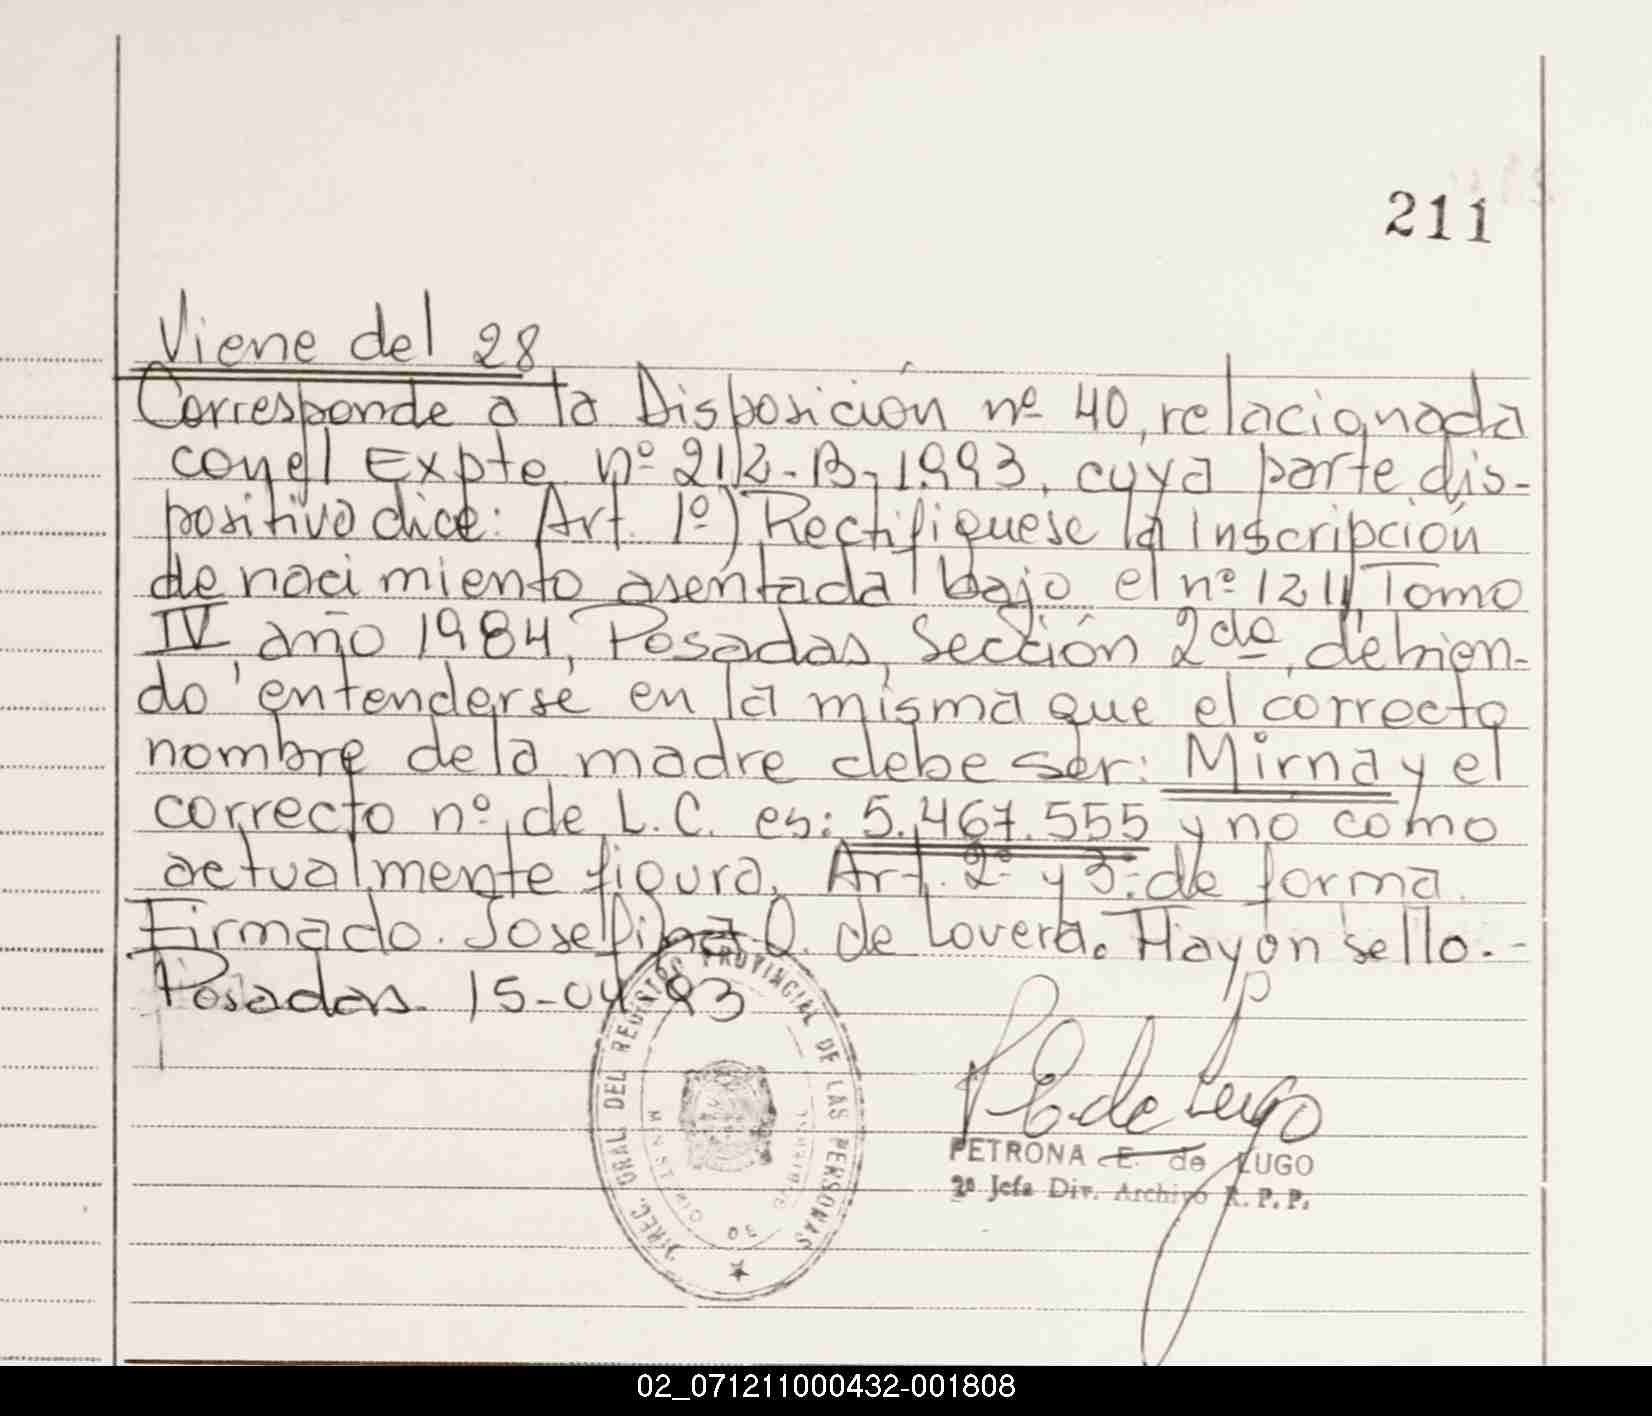 211
Viene del 28
Corresponde a la Disposición nº 40, relacionada
con el Expte nº 212-B-1993, cuya parte dis-
positiva dice: Art. 1º) Rectifiquese la Inscripción
de nacimiento asentada bajo el nº 1211, Tomo
IV año 1984, Posadas, Sección 2da, debien-
do entenderse en la misma que el correcto
nombre de la madre debe ser: Mirna y el
correcto nº de L.C. es: 5.467.555 y no como
actualmente figura. Art. 2º y 3º: de forma.
Firmado. Josefina Q. de Lovera. Hay un sello.-
Posadas 15-04-93
DIREC. GRAL. DEL REGISTRO PROVINCIAL DE LAS PERSONAS
P E de Lugo
PETRONA E. de LUGO
2º Jefa Div. Archivo R. P. P.
02_071211000432-001808